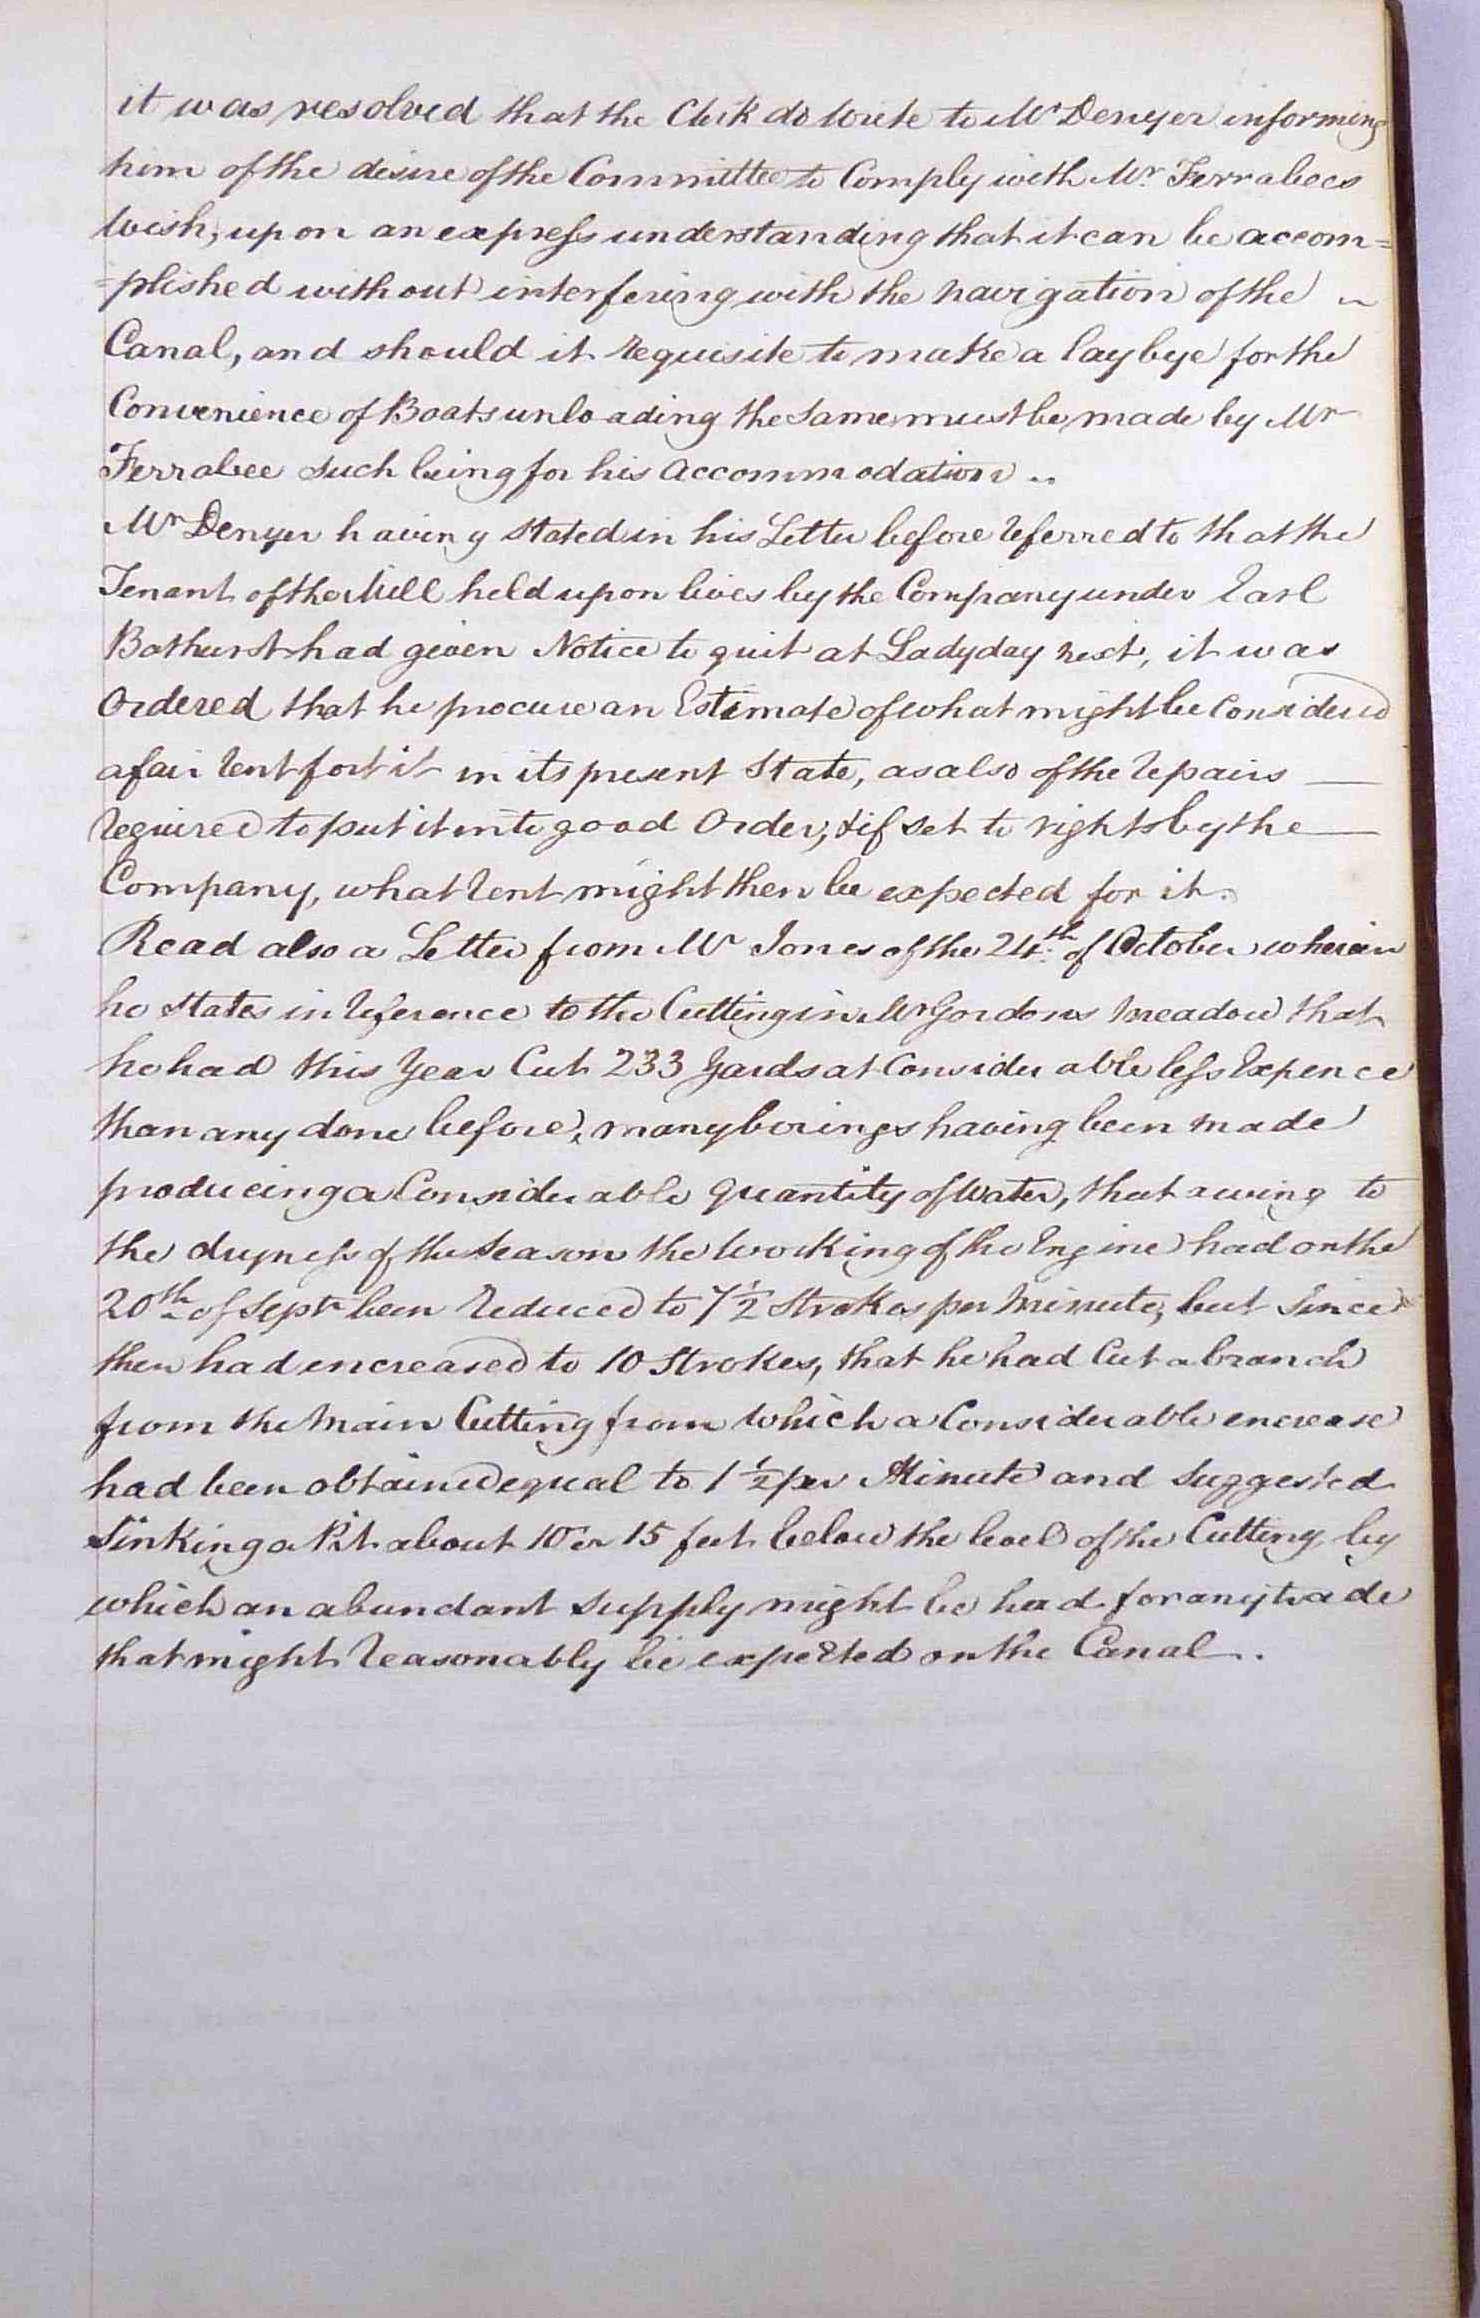 it was resolved that the Clerk do write to Mr Denyer informing
him of the desire of the Committee to Comply with Mr. Ferrabees
Wish, upon an express understanding that it can be accom=
=plished without interfering with the navigation of the
Canal, and should it requisite to make a lay bye for the
Convenience of Boats unloading the same must be made by Mr
Ferrabee such being for his accommodation
Mr Denyer having stated in his Letter before referred to that the
Tenant of the Mill held upon lives by the Company under Earl
Bathurst had given Notice to quit at Ladyday next, it was
Ordered that he procure an Estimate of what might be Considered
a fair rent for it in its present State, as also of the repairs
required to put it into good Order, & if set to rights by the
Company, what rent might then be expected for it.
Read also a Letter from Mr Jones of the 24th of October wherein
he states in reference to the Cutting in Mr Gordons meadow that
he had this Year Cut 233 Yards at Considerable less Expence
than any done before, many borings having been made
producing a Considerable quantity of Water, that awing to
the dryness of the Season the Working of the Engine had on the
20th of Septr been reduced to 7½ Strokes per minute, but Since
then had encreased to 10 Strokes, that he had Cut a branch
from the Main Cutting from which a Considerable encrease
had been obtained equal to 1½ per Minute and suggested
Sinking a Pit about 10 or 15 feet below the level of the Cutting by
which an abundant supply might be had for any trade
that might reasonably be expected on the Canal.